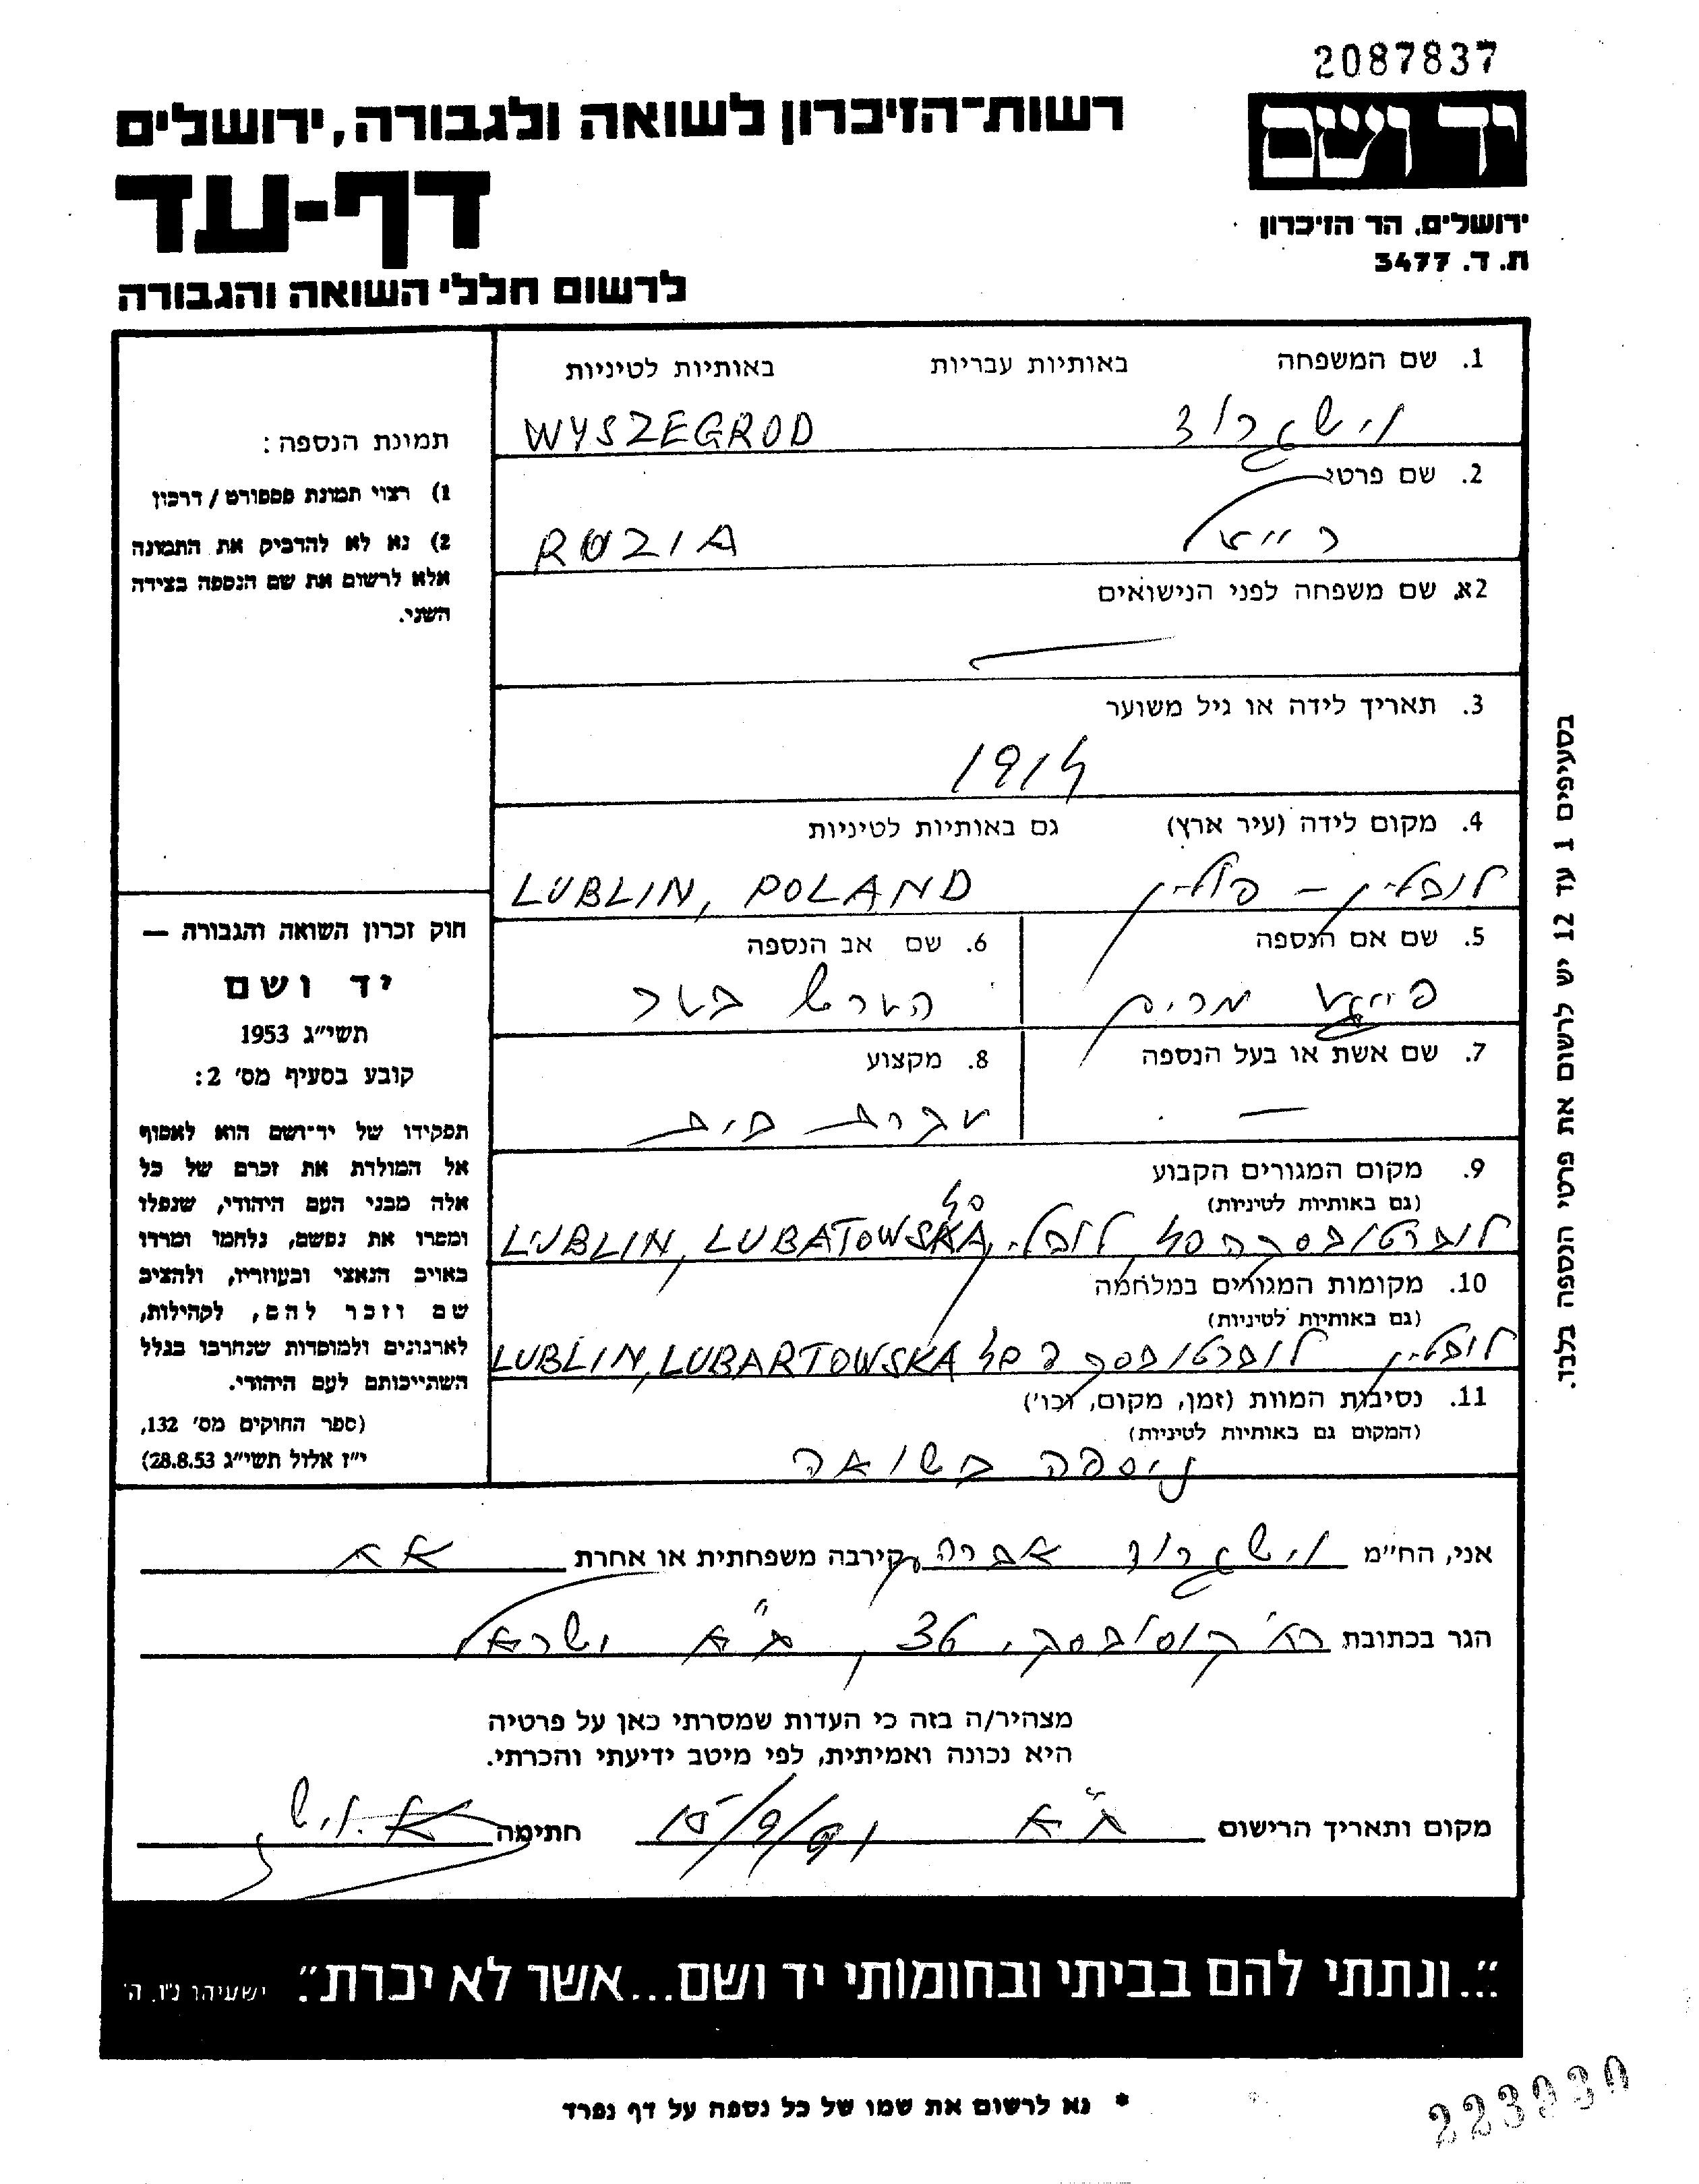 2087837
יד ושם
רשות־הזיכרון לשואה ולגבורה, ירושלים
דף-עד
ירושלים, הר הזיכרון
ת. ד. 3477
לרשום חללי השואה והגבורה
1. שם המשפחה באותיות עבריות באותיות לטיניות
וישגרוד WYSZEGROD
2. שם פרטי
רייזל ROZIA
2א. שם משפחה לפני הנישואים
—
3. תאריך לידה או גיל משוער
1914
4. מקום לידה (עיר ארץ) גם באותיות לטיניות
לובלין – פולין LUBLIN, POLAND
5. שם אם הנספה 6. שם אב הנספה
פייגע מרים הערש בער
7. שם אשת או בעל הנספה 8. מקצוע
—
9. מקום המגורים הקבוע
(גם באותיות לטיניות)
LUBLIN, LUBATOWSKA
10. מקומות המגורים במלחמה
(גם באותיות לטיניות)
לובלין LUBLIN, LUBARTOWSKA
11. נסיבות המוות (זמן, מקום, וכו')
(המקום גם באותיות לטיניות)
ניספה בשואה
תמונת הנספה:
1) רצוי תמונת פספורט / דרכון
2) נא לא להדביק את התמונה
אלא לרשום את שם הנספה בצידה
השני.
חוק זכרון השואה והגבורה —
יד ושם
תשי״ג 1953
קובע בסעיף מס׳ 2:
תפקידו של יד־ושם הוא לאסוף
אל המולדת את זכרם של כל
אלה מבני העם היהודי, שנפלו
ומסרו את נפשם, נלחמו ומרדו
באויב הנאצי ובעוזריו, ולהציב
שם וזכר להם, לקהילות,
לארגונים ולמוסדות שנחרבו בגלל
השתייכותם לעם היהודי.
(ספר החוקים מס׳ 132,
י״ז אלול תשי״ג 28.8.53)
בסעיפים 1 עד 12 יש לרשום את פרטי הנספה בלבד.
אני, הח״מ וישגרוד אברהם קירבה משפחתית או אחרת אח
הגר בכתובת 36, ת״א ישראל
מצהיר/ה בזה כי העדות שמסרתי כאן על פרטיה
היא נכונה ואמיתית, לפי מיטב ידיעתי והכרתי.
מקום ותאריך הרישום ת״א 15/9/91 חתימה
״...ונתתי להם בביתי ובחומותי יד ושם...אשר לא יכרת״. ישעיהו נ״ו, ה׳
* נא לרשום את שמו של כל נספה על דף נפרד